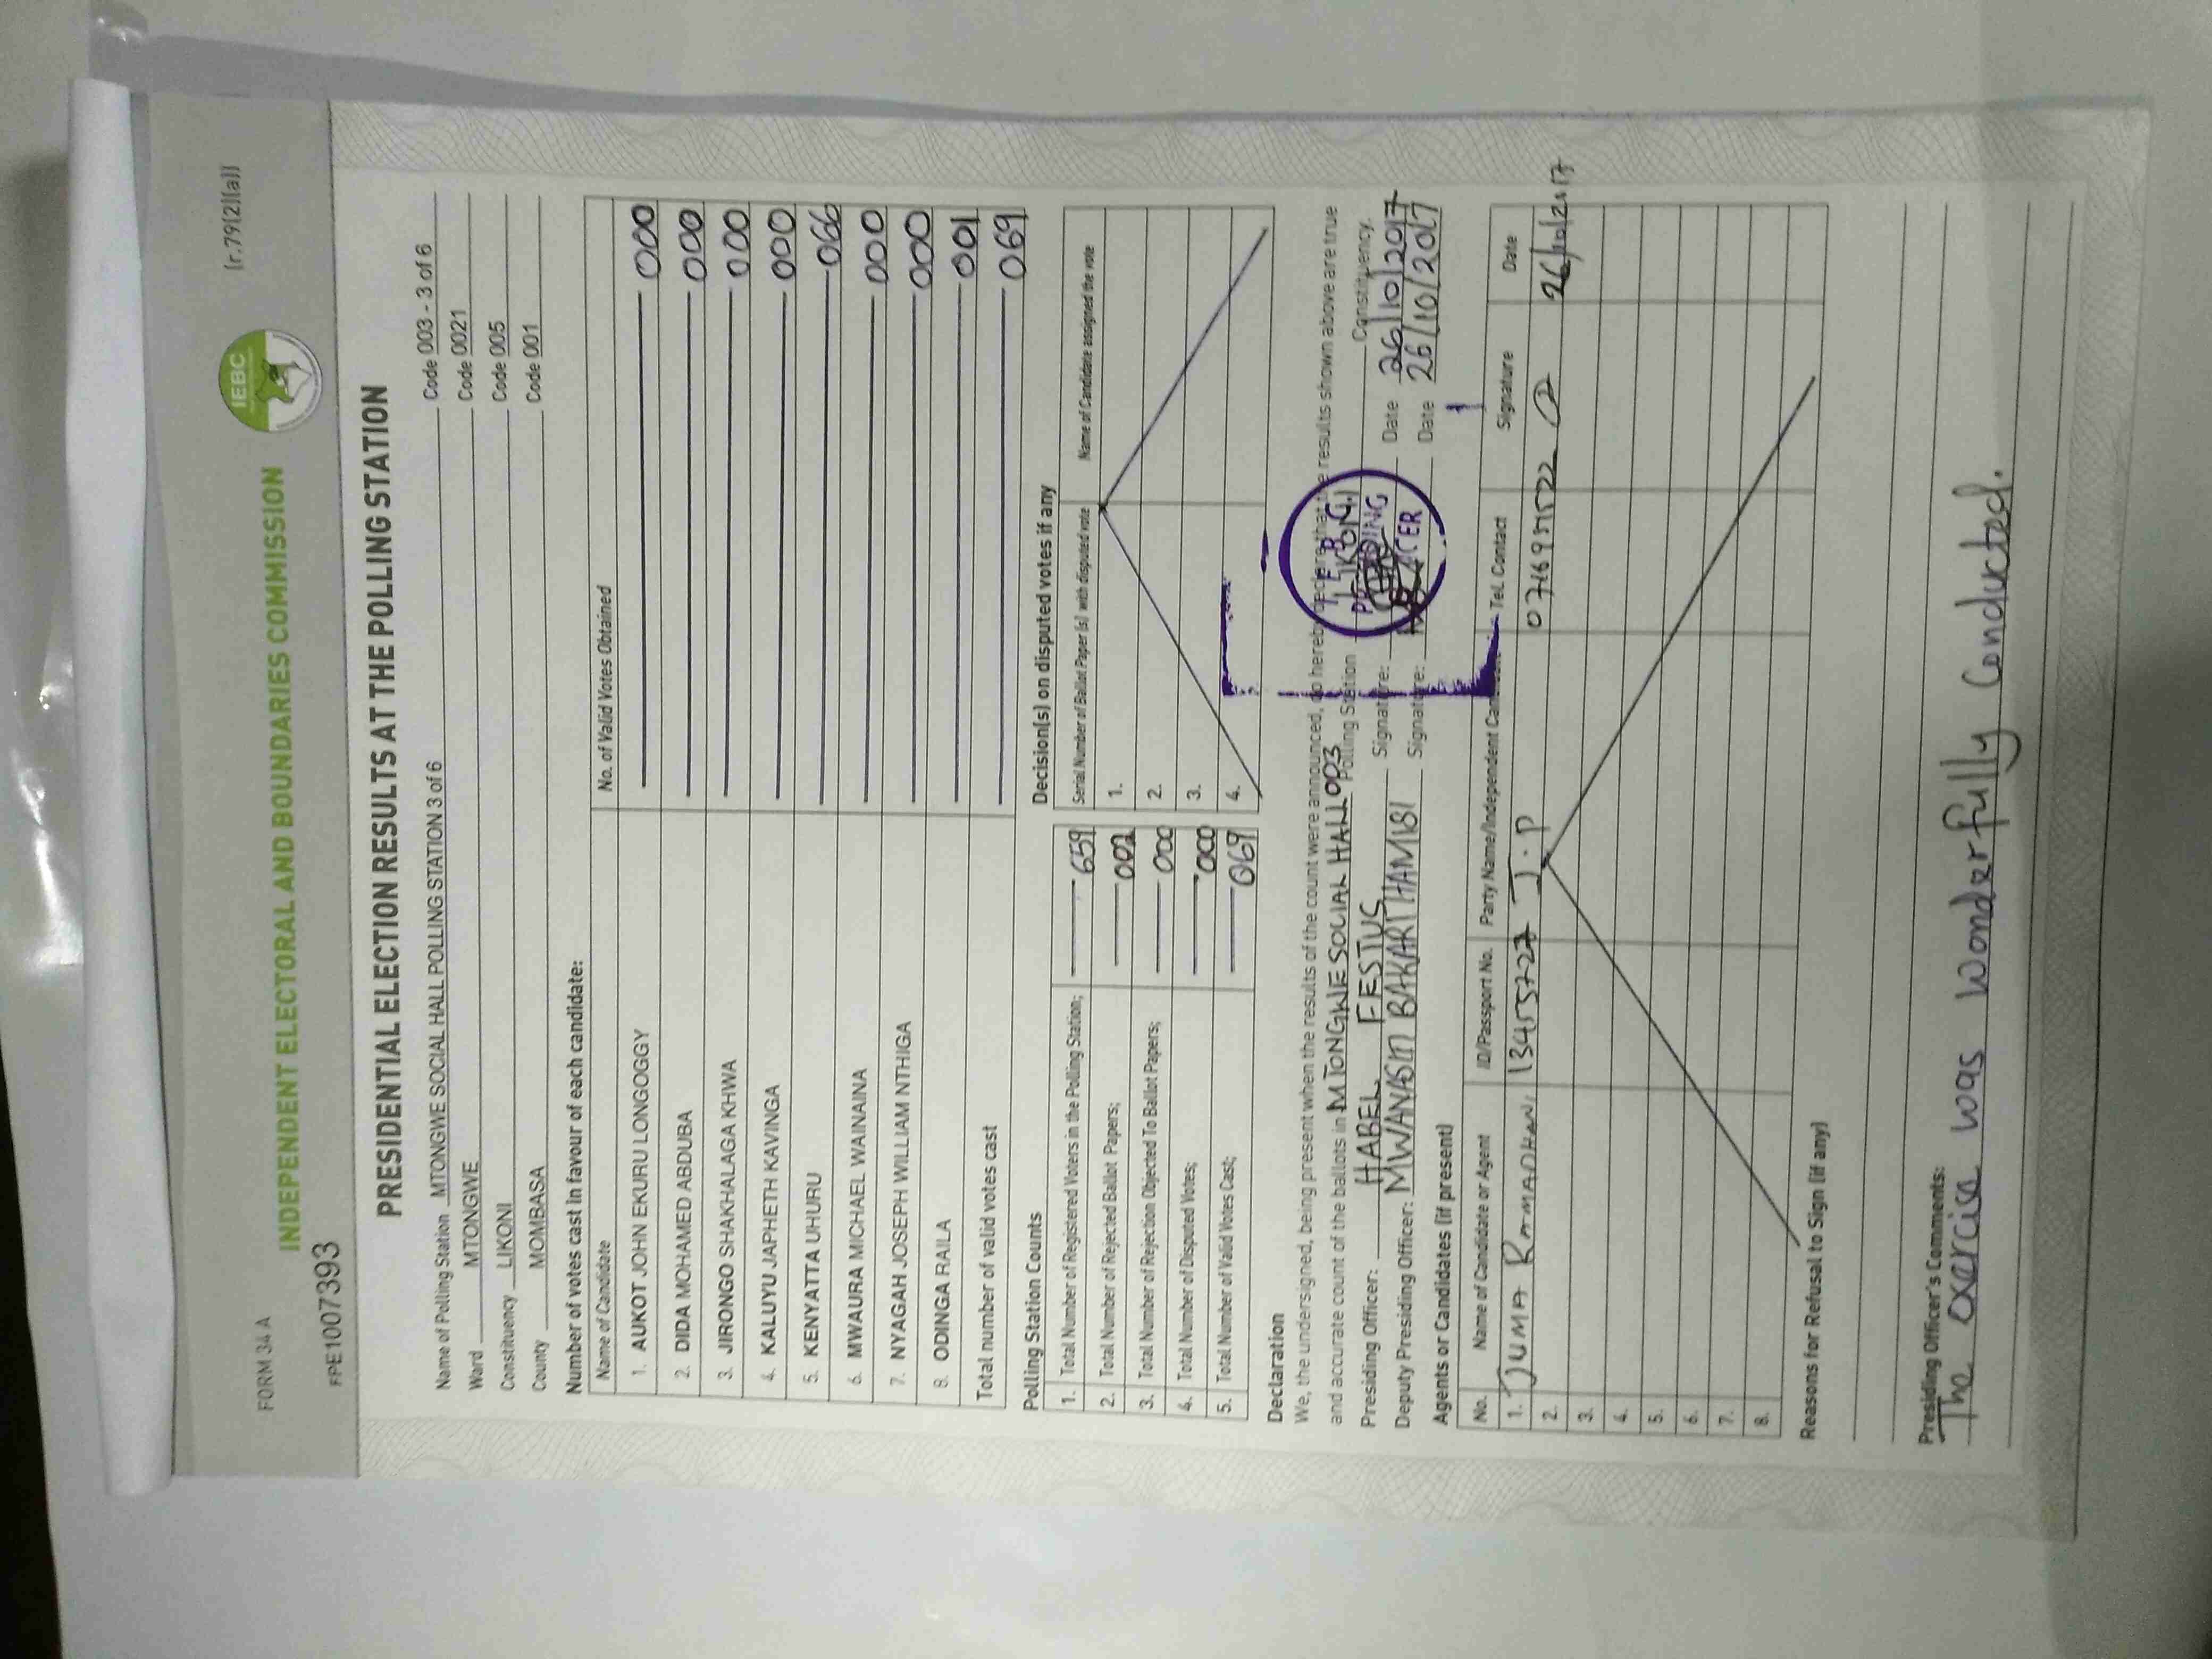 FORM 34 A
(r.79(2)(a))
INDEPENDENT ELECTORAL AND BOUNDARIES COMMISSION
IEBC
FPE1007393
PRESIDENTIAL ELECTION RESULTS AT THE POLLING STATION
Name of Polling Station MTONGWE SOCIAL HALL POLLING STATION 3 of 6 Code 003 - 3 of 6
Ward MTONGWE Code 0021
Constituency LIKONI Code 005
County MOMBASA Code 001
Number of votes cast in favour of each candidate:
Name of Candidate No. of Valid Votes Obtained
1. AUKOT JOHN EKURU LONGOGGY 000
2. DIDA MOHAMED ABDUBA 000
3. JIRONGO SHAKHALAGA KHWA 000
4. KALUYU JAPHETH KAVINGA 000
5. KENYATTA UHURU 066
6. MWAURA MICHAEL WAINAINA 000
7. NYAGAH JOSEPH WILLIAM NTHIGA 000
8. ODINGA RAILA 001
Total number of valid votes cast 069
Polling Station Counts
1. Total Number of Registered Voters in the Polling Station; 659
2. Total Number of Rejected Ballot Papers; 002
3. Total Number of Rejection Objected To Ballot Papers; 000
4. Total Number of Disputed Votes; 000
5. Total Number of Valid Votes Cast; 069
Decision(s) on disputed votes if any
Serial Number of Ballot Paper (s) with disputed vote Name of Candidate assigned the vote
1.
2.
3.
4.
Declaration
We, the undersigned, being present when the results of the count were announced, do hereby declare that the results shown above are true
and accurate count of the ballots in MTONGWE SOCIAL HALL 003 Polling Station LIKONI Constituency.
Presiding Officer: HABEL FESTUS Signature: Date 26/10/2017
Deputy Presiding Officer: BAKARI Signature: Date 26/10/2017
Agents or Candidates (if present)
No. Name of Candidate or Agent ID/Passport No. Party Name/Independent Tel. Contact Signature Date
1. JUMA 13455727 J.P 26/10/2017
2.
3.
4.
5.
6.
7.
8.
Reasons for Refusal to Sign (if any)
Presiding Officer's Comments:
The exercise was wonderfully conducted.